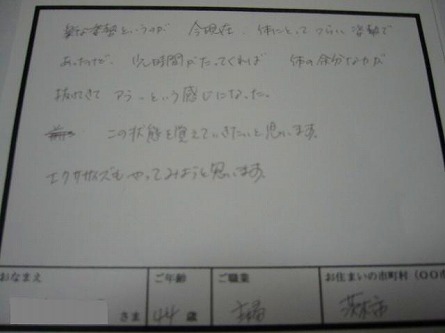 姿勢というのが 今現在、体にとって つらい姿勢で
あったが、少し時間がたってくれば 体の余分な力が
抜けてきて アラ、という感じになった。
この状態を覚えていきたいと思います。
エクササイズも やってみようと思います。
おなまえ ご年齢 ご職業 お住まいの市町村（○○市
さま 44 歳 主婦 茨木市